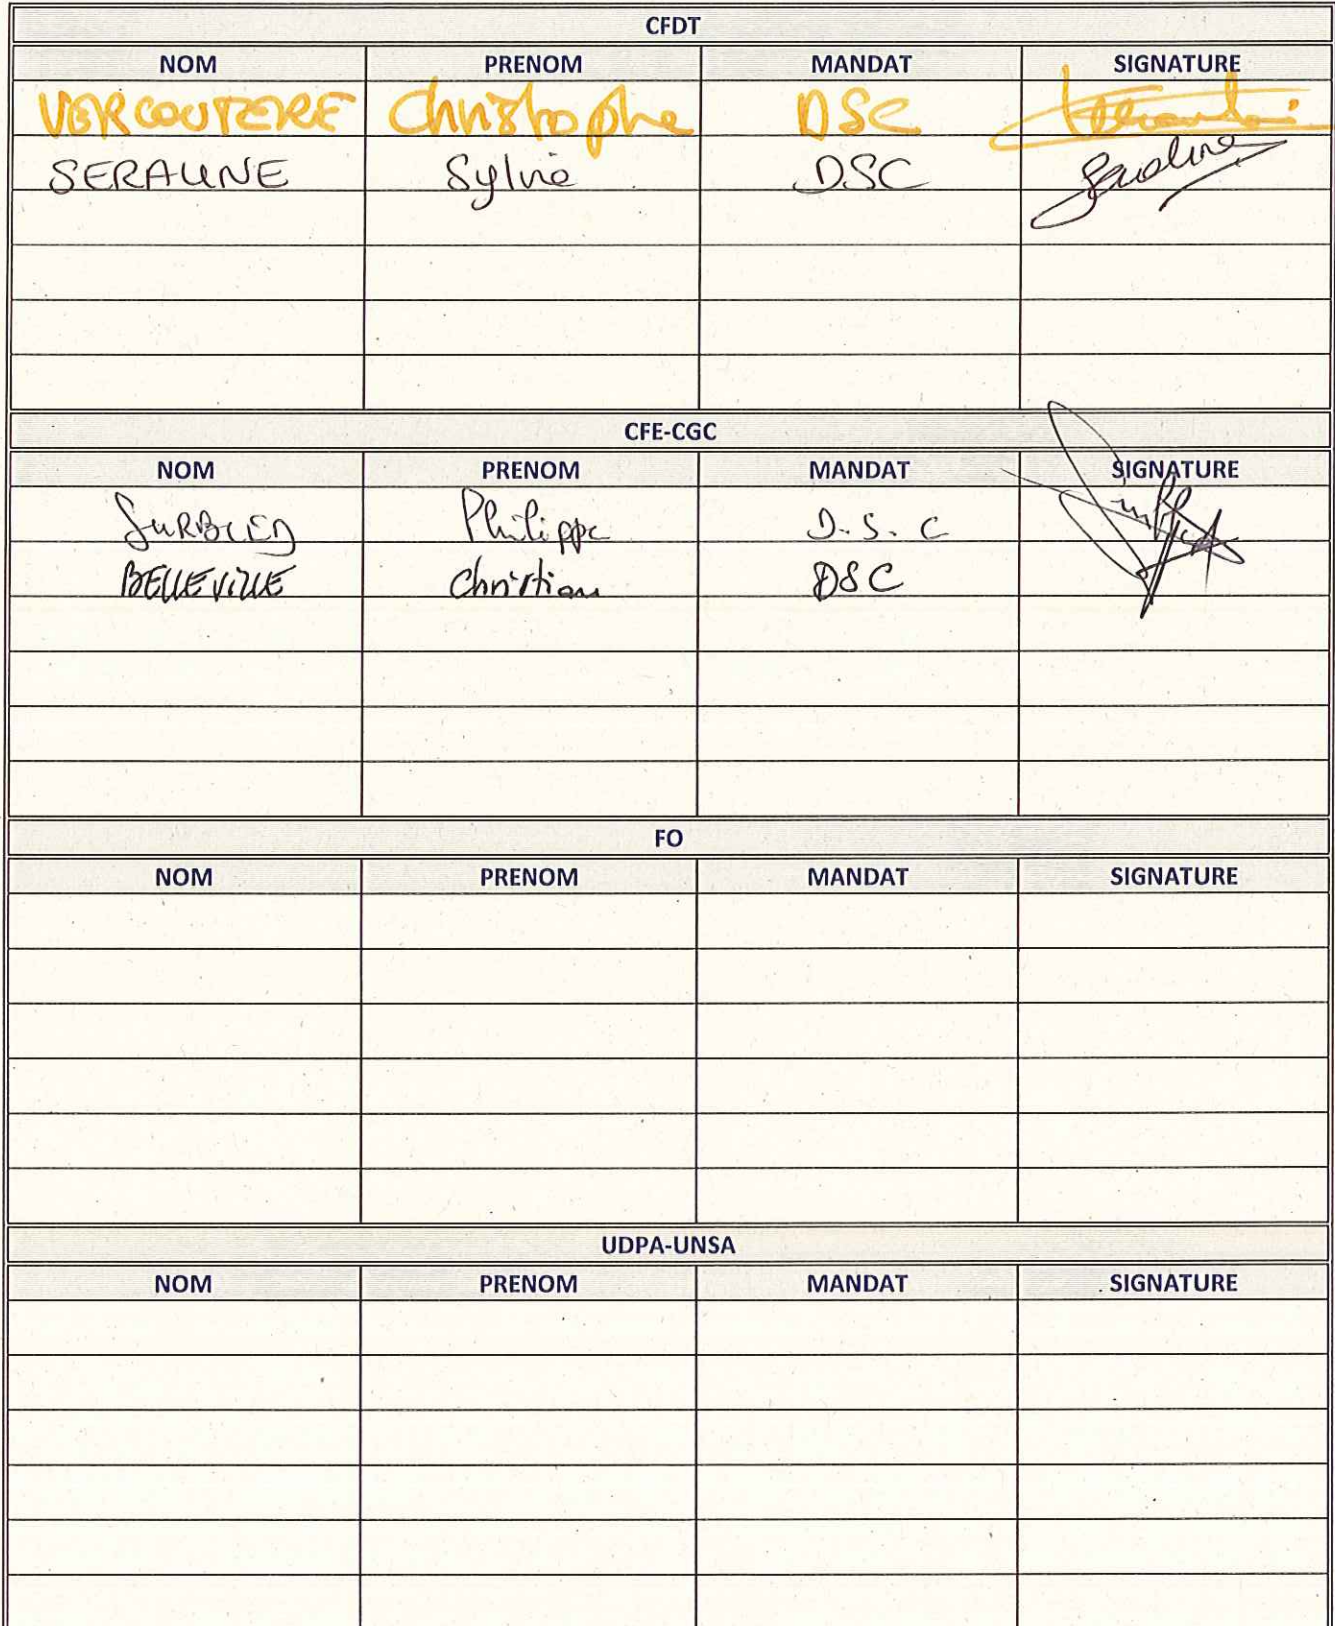 CFDT
NOM PRENOM MANDAT SIGNATURE
VERCOUTERE Christophe DSC
SERALINE Sylvie DSC
CFE-CGC
NOM PRENOM MANDAT SIGNATURE
SURBLED Philippe D.S.C
BELLEVILLE Christian DSC
FO
NOM PRENOM MANDAT SIGNATURE
UDPA-UNSA
NOM PRENOM MANDAT SIGNATURE